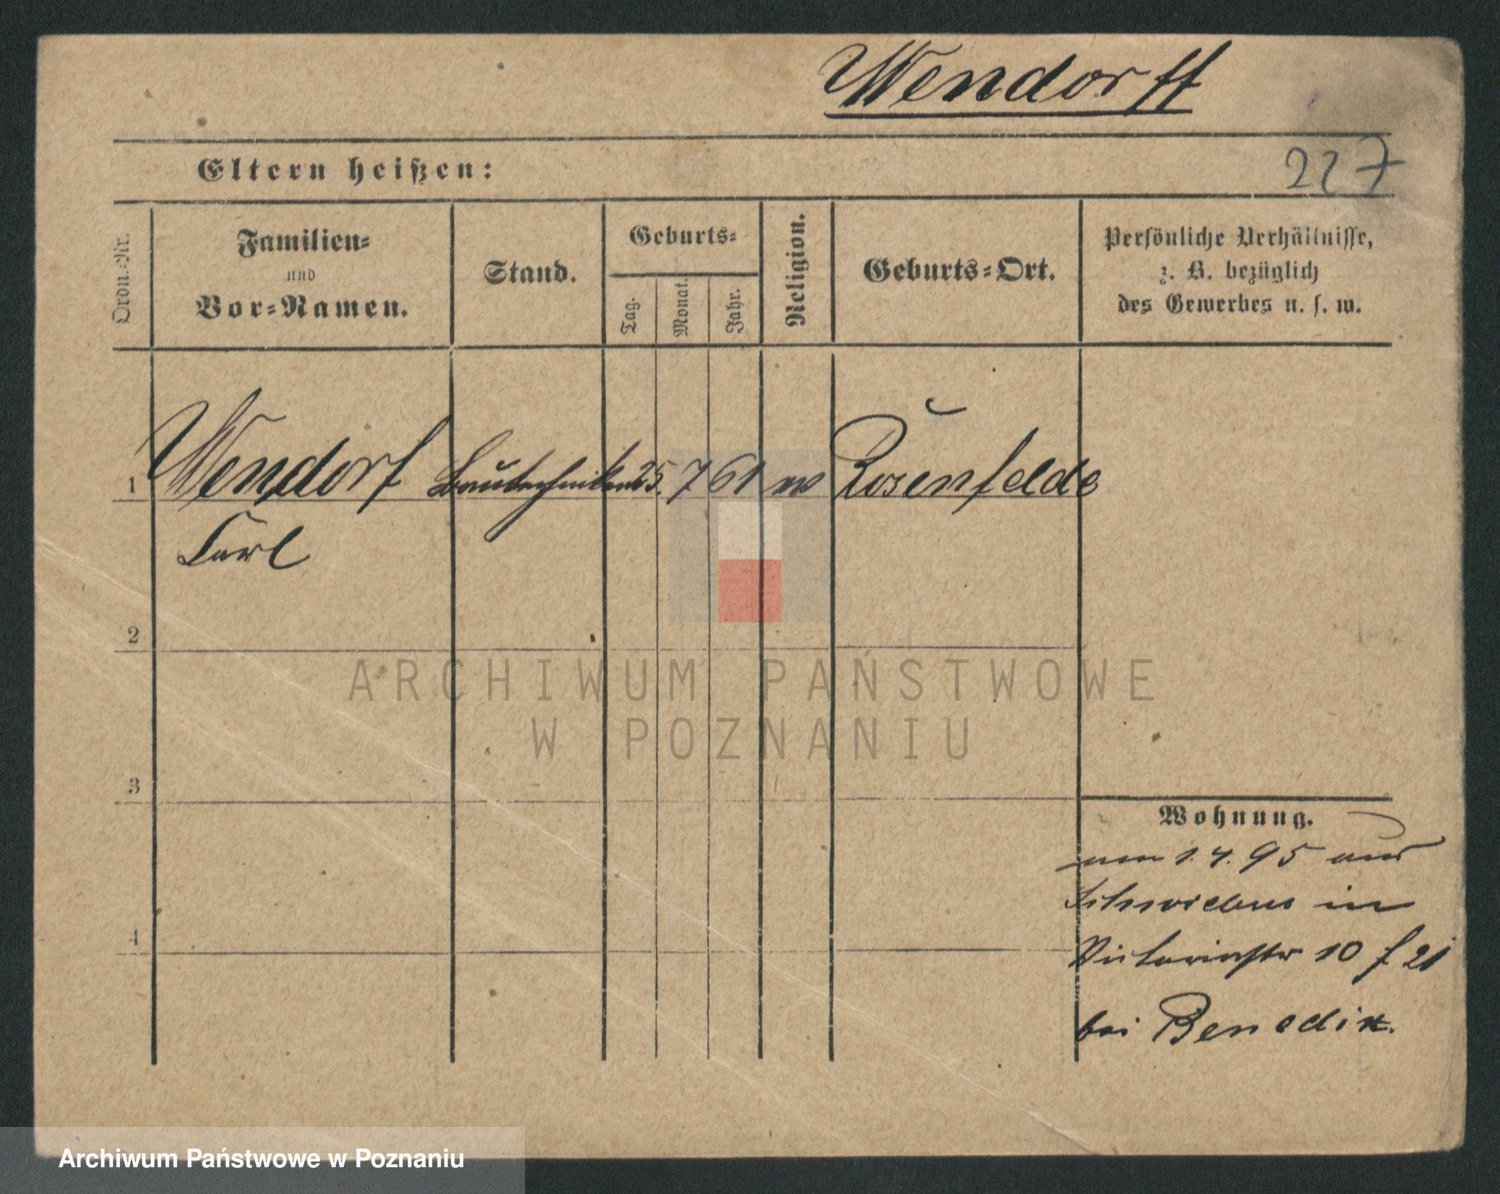 Wendorff
Eltern heißen:
227
Ordn.-Nr.
Familien-
und
Vor-Namen.
Stand.
Geburts-
Tag.
Monat.
Jahr.
Religion.
Geburts-Ort.
Persönliche Verhältnisse,
z. B. bezüglich
des Gewerbes u. s. w.
1 Wendorf Bautechniker 25. 7 61 Rosenfelde
Carl
2
3
4
ARCHIWUM PAŃSTWOWE
W POZNANIU
Wohnung.
1.4.95 aus
Schwiebus in
Victoriastr 10
bei Benedix.
Archiwum Państwowe w Poznaniu